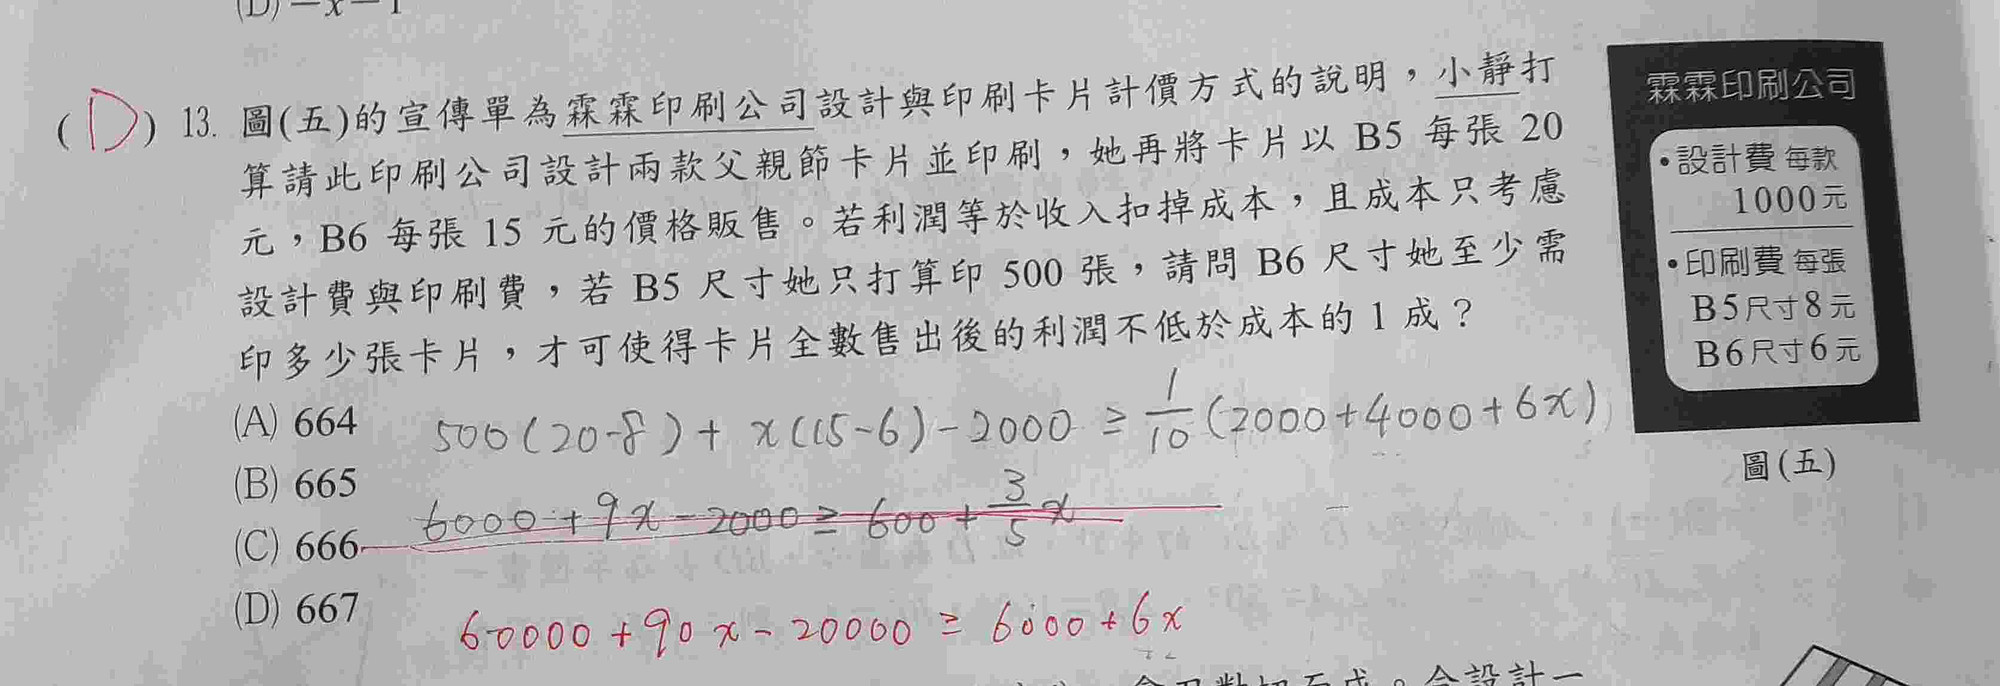 (D) −x−1
(D) 13. 圖(五)的宣傳單為霖霖印刷公司設計與印刷卡片計價方式的說明，小靜打
算請此印刷公司設計兩款父親節卡片並印刷，她再將卡片以 B5 每張 20
元，B6 每張 15 元的價格販售。若利潤等於收入扣掉成本，且成本只考慮
設計費與印刷費，若 B5 尺寸她只打算印 500 張，請問 B6 尺寸她至少需
印多少張卡片，才可使得卡片全數售出後的利潤不低於成本的 1 成？
(A) 664
(B) 665
(C) 666
(D) 667
500(20-8)+x(15-6)-2000≥1/10(2000+4000+6x)
6000+9x-2000≥600+3/5x
60000+90x-20000≥6000+6x
霖霖印刷公司
•設計費 每款
1000元
•印刷費 每張
B5尺寸8元
B6尺寸6元
圖(五)